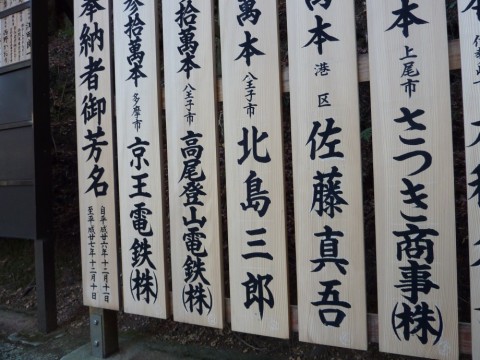 奉納者御芳名
自平成廿六年十二月十一日
至平成廿七年十二月十日
参拾萬本 多摩市 京王電鉄(株)
参拾萬本 八王子市 高尾登山電鉄(株)
萬本 八王子市 北島三郎
萬本 港区 佐藤真吾
本 上尾市 さつき商事(株)